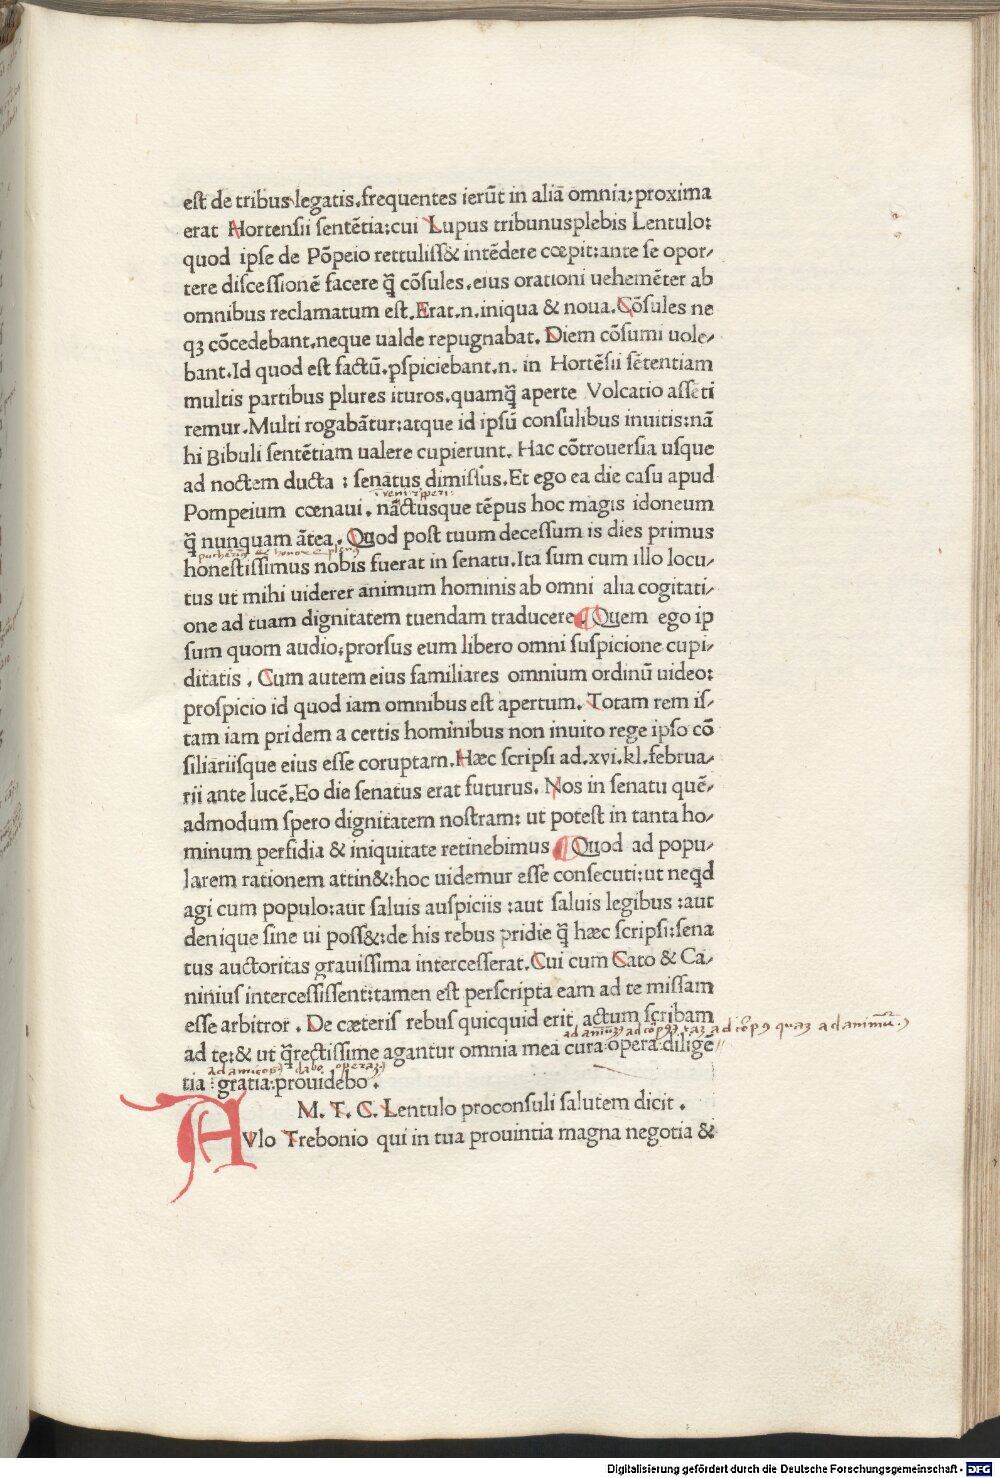 est de tribus legatis.frequentes ierūt in aliā omnia:proxima
erat Hortensii sentētia:cui Lupus tribunusplebis Lentulo:
quod ipse de Pōpeio rettuliss& intēdere cœpit:ante se opor-
tere discessionē facere q̄ cōsules.eius orationi uehemēter ab
omnibus reclamatum est.Erat.n.iniqua & noua.Cōsules ne
qȝ cōcedebant.neque ualde repugnabat. Diem cōsumi uole-
bant.Id quod est factū.ꝑspiciebant.n. in Hortēsii sētentiam
multis partibus plures ituros.quamq̄ aperte Volcatio assēti
remur.Multi rogabātur:atque id ipsū consulibus inuitis:nā
hi Bibuli sentētiam ualere cupierunt. Hac cōtrouersia usque
ad noctem ducta : senatus dimissus.Et ego ea die casu apud
Pompeium cœnaui. nāctusque tēpus hoc magis idoneum
q̄ nunquam ātea. Quod post tuum decessum is dies primus
honestissimus nobis fuerat in senatu.Ita sum cum illo locu-
tus ut mihi uiderer animum hominis ab omni alia cogitati-
one ad tuam dignitatem tuendam traducere. Quem ego ip
sum quom audio:prorsus eum libero omni suspicione cupi-
ditatis . Cum autem eius familiares omnium ordinū uideo:
prospicio id quod iam omnibus est apertum. Totam rem is-
tam iam pridem a certis hominibus non inuito rege ipso cō
siliariisque eius esse coruptam.Hæc scripsi ad.xvi.kl.februa-
rii ante lucē.Eo die senatus erat futurus. Nos in senatu quē-
admodum spero dignitatem nostram: ut potest in tanta ho-
minum perfidia & iniquitate retinebimus Quod ad popu-
larem rationem attin&:hoc uidemur esse consecuti:ut neq̄d
agi cum populo:aut saluis auspiciis :aut saluis legibus :aut
denique sine ui poss&:de his rebus pridie q̄ hæc scripsi:sena
tus auctoritas grauissima intercesserat.Cui cum Cato & Ca-
ninius intercessissent:tamen est perscripta eam ad te missam
esse arbitror . De cæteris rebus quicquid erit actum scribam
ad te:& ut q̄rectissime agantur omnia mea cura opera diligē
tia gratia:prouidebo .
M. T. C. Lentulo proconsuli salutem dicit .
AVlo Trebonio qui in tua prouintia magna negotia &
Digitalisierung gefördert durch die Deutsche Forschungsgemeinschaft - DFG